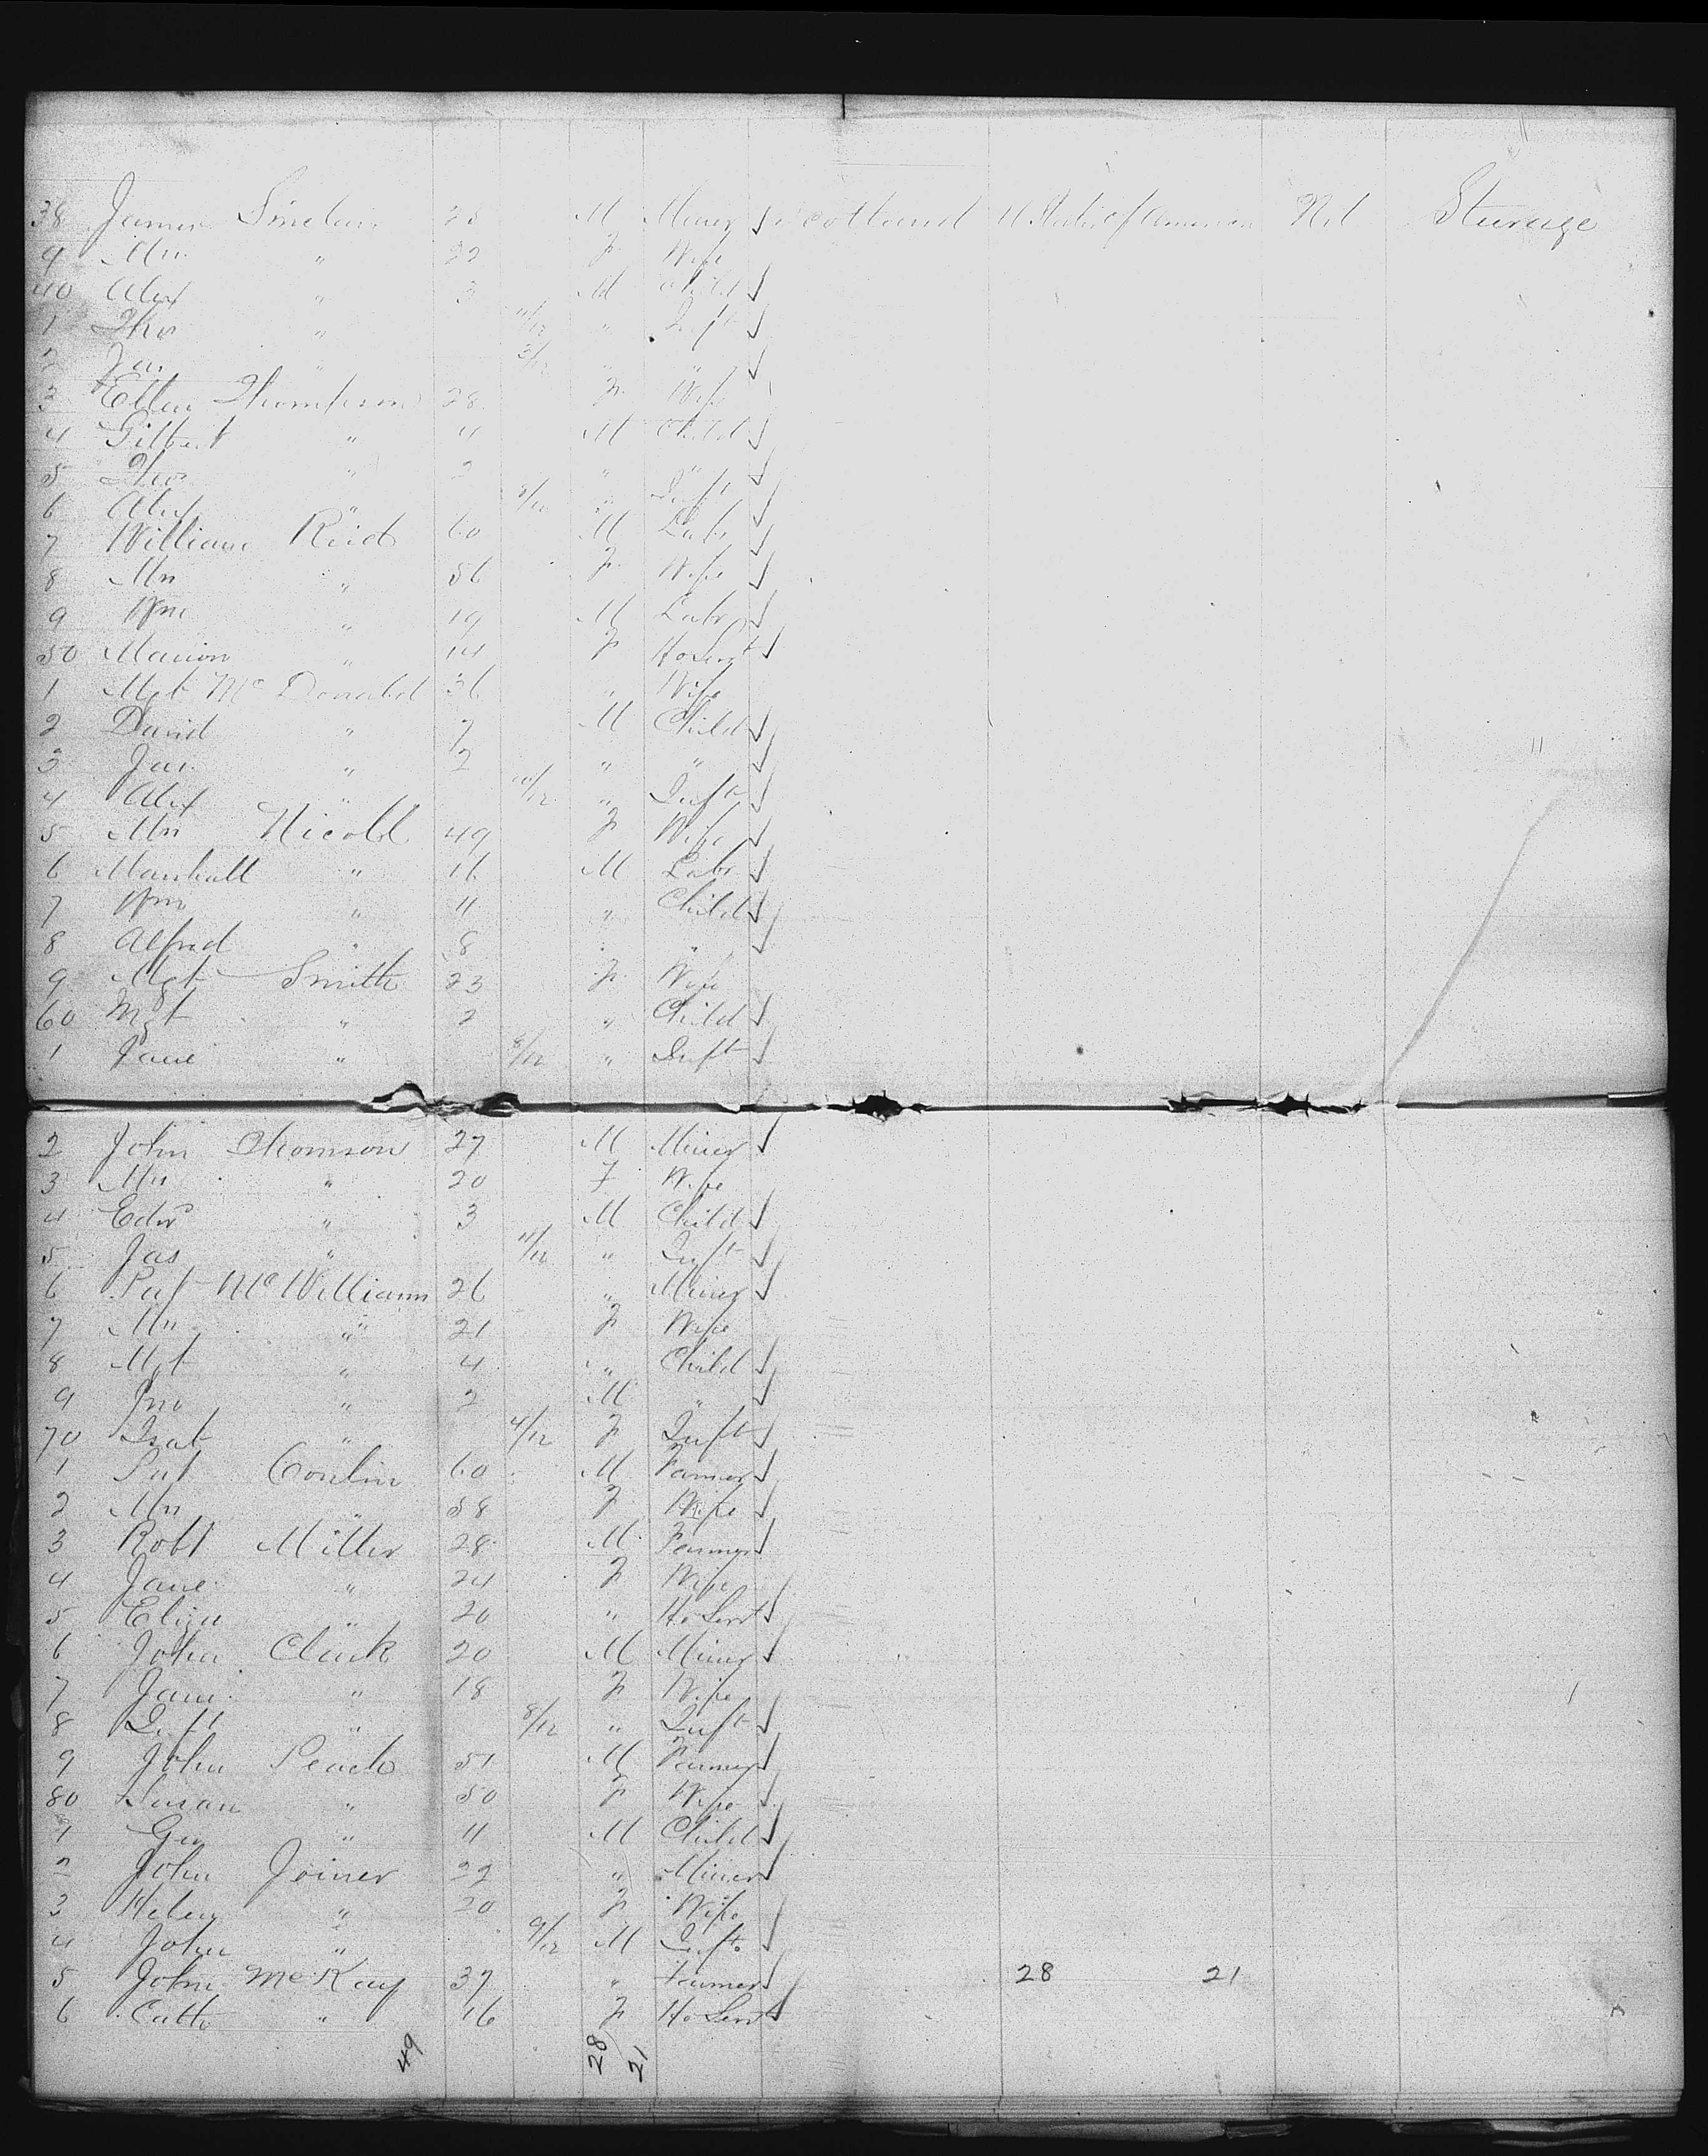 38 James Sinclair 25 M Miner Scotland U. States of America Nil Steerage
9 Mrs " 22 F Wife
40 Alex " 3 M Child
1 Thos " 11/12 " Inft
2 Jas " 3/12 " "
3 Ellen Thompson 28 F Wife
4 Gilbert " 4 M Child
5 Thos " 2 " "
6 Alex " 8/12 " Inft
7 William Reid 60 M Labr
8 Mrs " 56 F Wife
9 Wm " 19 M Labr
50 Marion " 14 F Ho Servt
1 Mgt McDonald 36 " Wife
2 David " 7 M Child
3 Jas " 2 " "
4 Alex " 10/12 " Inft
5 Mrs Nicoll 49 F Wife
6 Marshall " 16 M Labr
7 Wm " 11 " Child
8 Alfred " 8 " "
9 Mgt Smith 23 F Wife
60 Mgt " 2 " Child
1 Jane " 8/12 " Inft
2 John Thomson 27 M Miner
3 Mrs " 20 F Wife
4 Edwd " 3 M Child
5 Jas " 11/12 " Inft
6 Pat McWilliams 26 " Miner
7 Mrs " 21 F Wife
8 Mgt " 4 " Child
9 Jno " 2 M "
70 Isab " 4/12 F Inft
1 Pat Conlin 60 M Farmer
2 Mrs " 58 F Wife
3 Robt Miller 28 M Farmer
4 Jane " 24 F Wife
5 Eliza " 20 " Ho Servt
6 John Clark 20 M Miner
7 Jane " 18 F Wife
8 Inft " 8/12 " Inft
9 John Peach 51 M Farmer
80 Susan " 50 F Wife
1 Geo " 11 M Child
2 John Joiner 22 " Miner
3 Helen " 20 F Wife
4 John " 9/12 M Inft
5 John McKay 37 " Farmer 28 21
6 Cath " 16 F Ho Servt
49 28 21